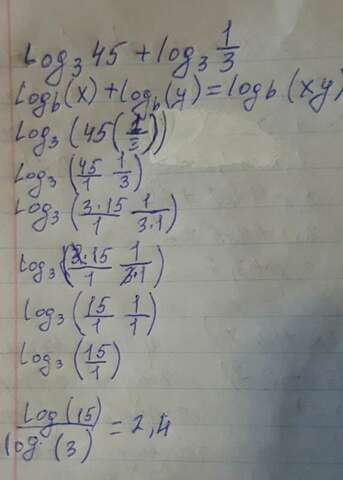 Log₃ 45 + log₃ 1/3
Log_b(x) + Log_b(y) = log_b(xy)
Log₃ (45(1/3))
Log₃ (45/1 1/3)
Log₃ (3·15/1 1/3·1)
Log₃ (3·15/1 1/3·1)
Log₃ (15/1 1/1)
Log₃ (15/1)
Log(15)/log(3) = 2,4